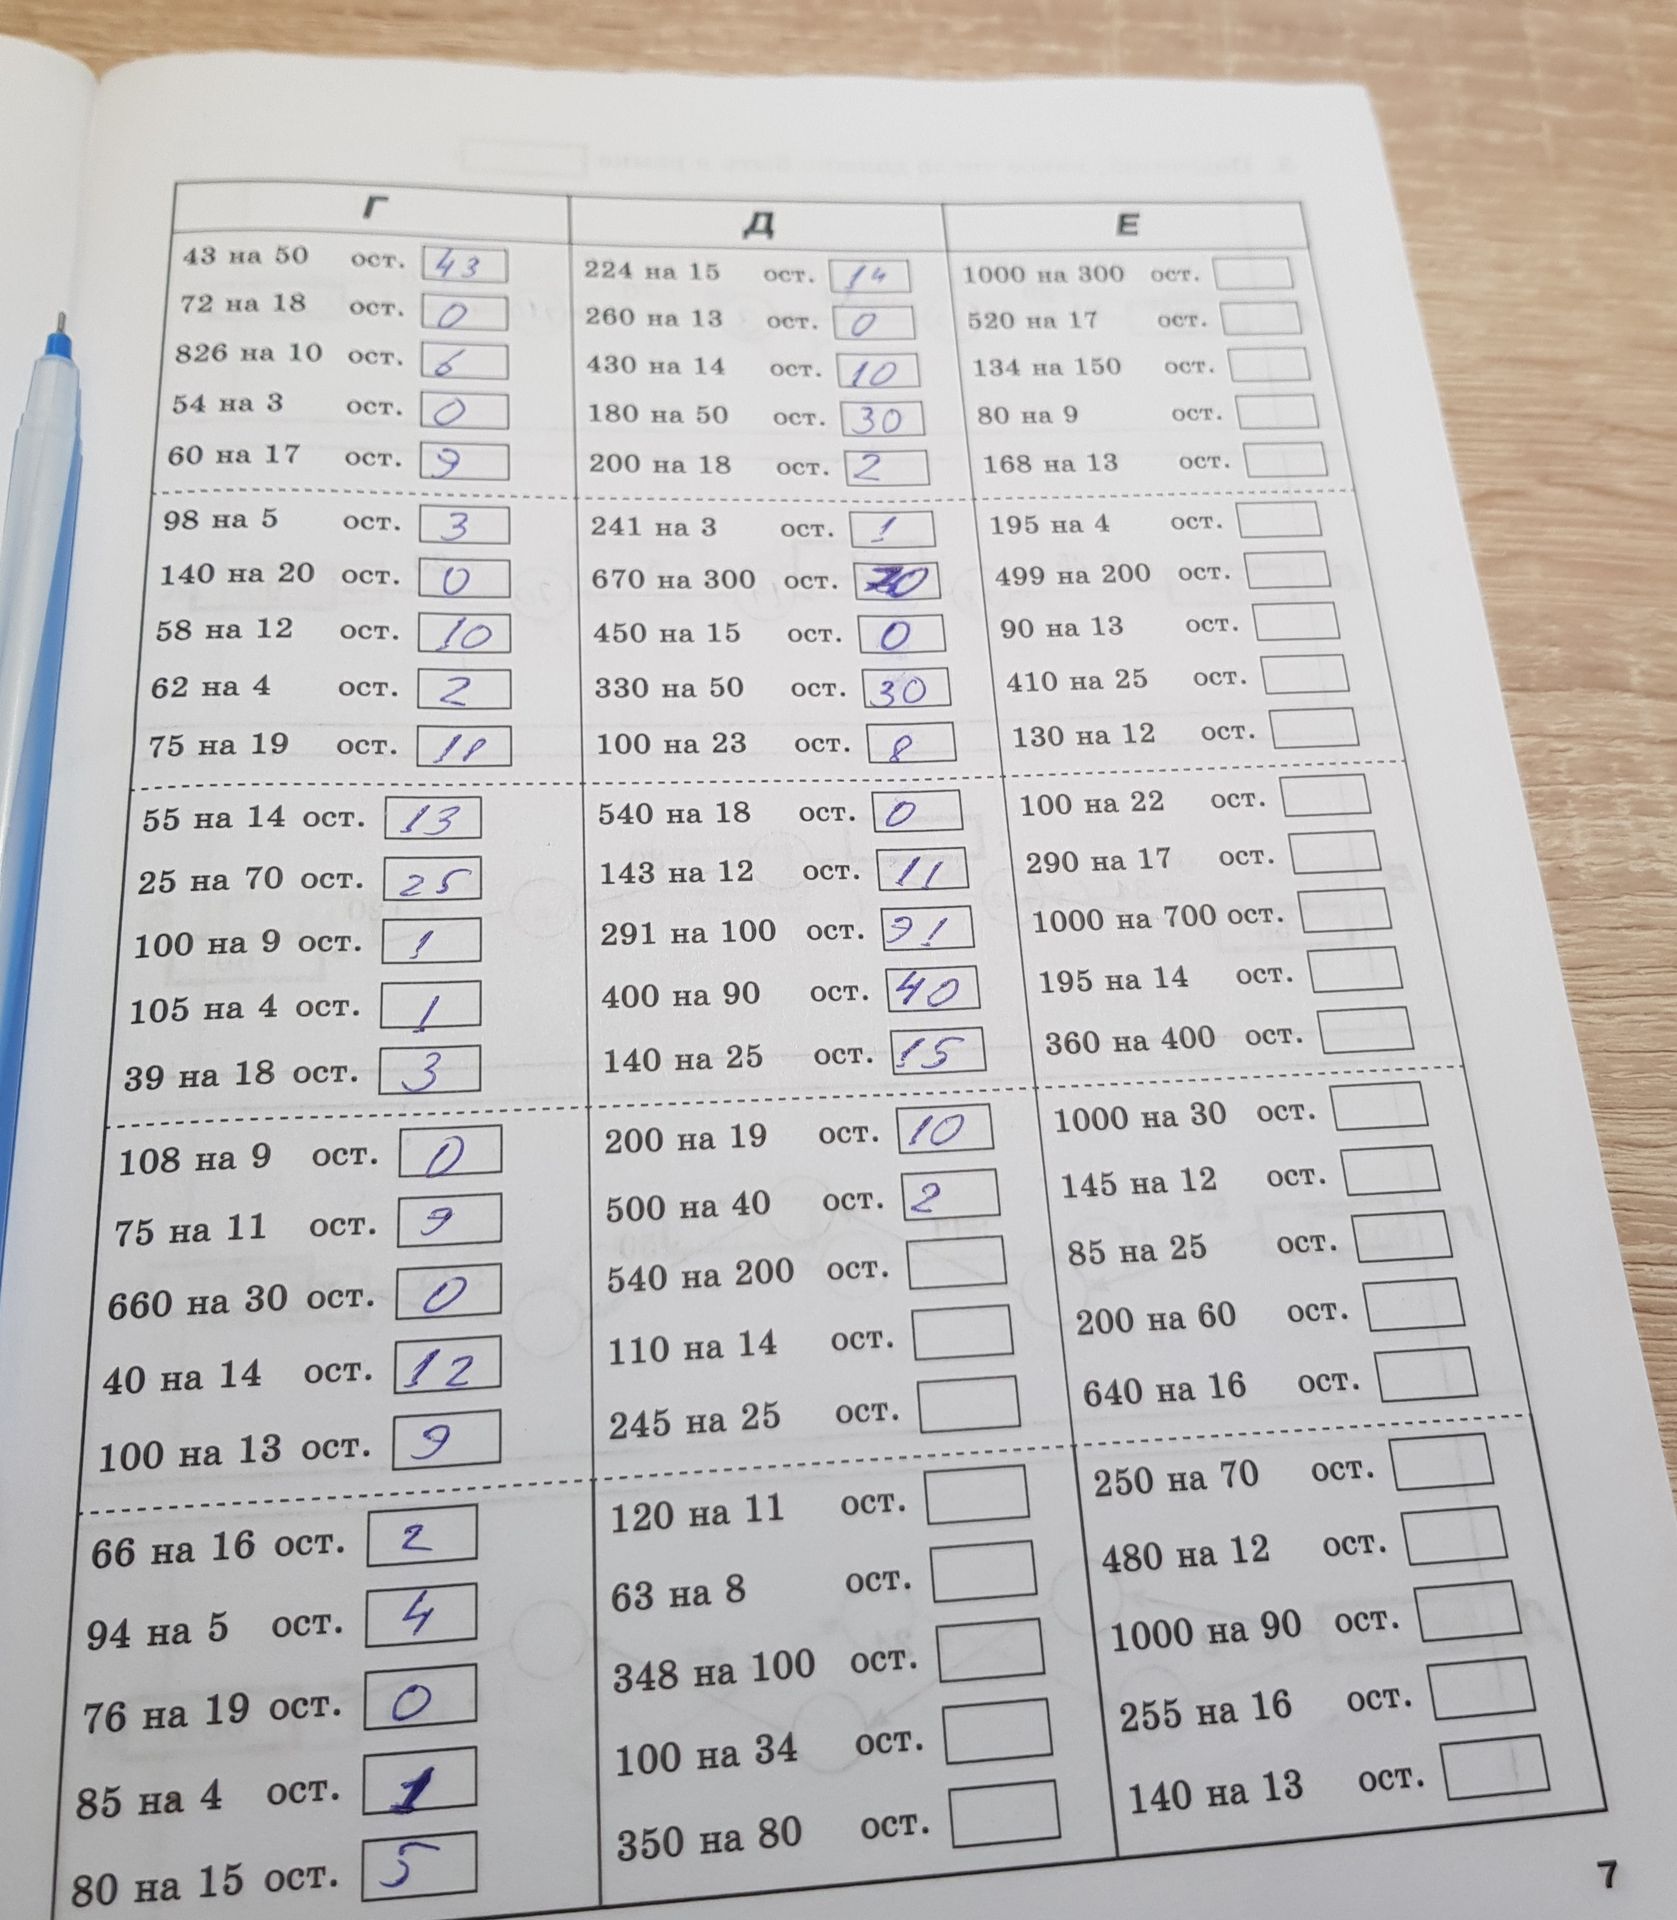 Г
43 на 50 ост. 43
72 на 18 ост. 0
826 на 10 ост. 6
54 на 3 ост. 0
60 на 17 ост. 9
98 на 5 ост. 3
140 на 20 ост. 0
58 на 12 ост. 10
62 на 4 ост. 2
75 на 19 ост. 18
55 на 14 ост. 13
25 на 70 ост. 25
100 на 9 ост. 1
105 на 4 ост. 1
39 на 18 ост. 3
108 на 9 ост. 0
75 на 11 ост. 9
660 на 30 ост. 0
40 на 14 ост. 12
100 на 13 ост. 9
66 на 16 ост. 2
94 на 5 ост. 4
76 на 19 ост. 0
85 на 4 ост. 1
80 на 15 ост. 5
Д
224 на 15 ост. 14
260 на 13 ост. 0
430 на 14 ост. 10
180 на 50 ост. 30
200 на 18 ост. 2
241 на 3 ост. 1
670 на 300 ост. 70
450 на 15 ост. 0
330 на 50 ост. 30
100 на 23 ост. 8
540 на 18 ост. 0
143 на 12 ост. 11
291 на 100 ост. 91
400 на 90 ост. 40
140 на 25 ост. 15
200 на 19 ост. 10
500 на 40 ост. 2
540 на 200 ост.
110 на 14 ост.
245 на 25 ост.
120 на 11 ост.
63 на 8 ост.
348 на 100 ост.
100 на 34 ост.
350 на 80 ост.
Е
1000 на 300 ост.
520 на 17 ост.
134 на 150 ост.
80 на 9 ост.
168 на 13 ост.
195 на 4 ост.
499 на 200 ост.
90 на 13 ост.
410 на 25 ост.
130 на 12 ост.
100 на 22 ост.
290 на 17 ост.
1000 на 700 ост.
195 на 14 ост.
360 на 400 ост.
1000 на 30 ост.
145 на 12 ост.
85 на 25 ост.
200 на 60 ост.
640 на 16 ост.
250 на 70 ост.
480 на 12 ост.
1000 на 90 ост.
255 на 16 ост.
140 на 13 ост.
7